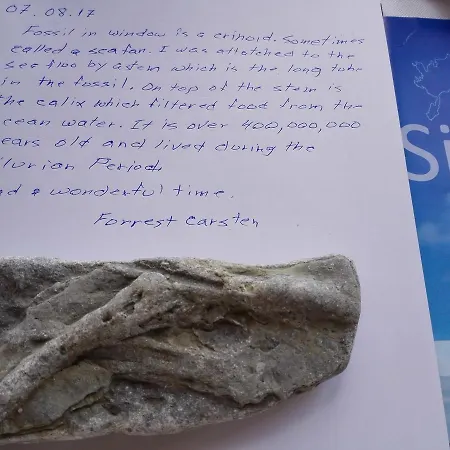 07.08.17
Fossil in window is a crinoid. Sometimes
called a sea fan. I was attatched to the
see floo by a stem which is the long tube
in the fossil. On top of the stem is
the calix which filtered food from the
cean water. It is over 400,000,000
ears old and lived during the
lurian Period.
ad a wonderful time.
Forrest Carsten
Si